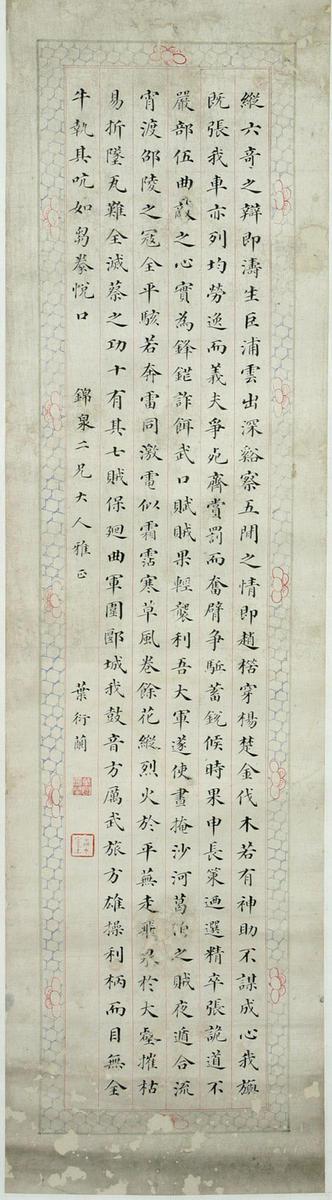 縱六奇之辯即濤生巨浦雲出深谿察五間之情即趙楛穿楊楚金伐木若有神助不謀成心我旗
既張我車亦列均勞逸而義夫爭死齊賞罰而奮臂爭馳蓄銳候時果申長策迺選精卒張詭道不
嚴部伍曲蔽之心實為鋒鎧詐餌武口賦賊果輕襲利吾大軍遂使晝掩沙河葛洎之賊夜遁合流
宵渡邵陵之寇全平駭若奔雷同激電似霜霑寒草風卷餘花縱烈火於平蕪走飛於大壑摧枯
易折墜瓦難全滅蔡之功十有其七賊保廻曲軍圍郾城我鼓音方厲武旅方雄操利柄而目無全
牛執其吭如芻豢悅口
錦泉二兄大人雅正
葉衍蘭